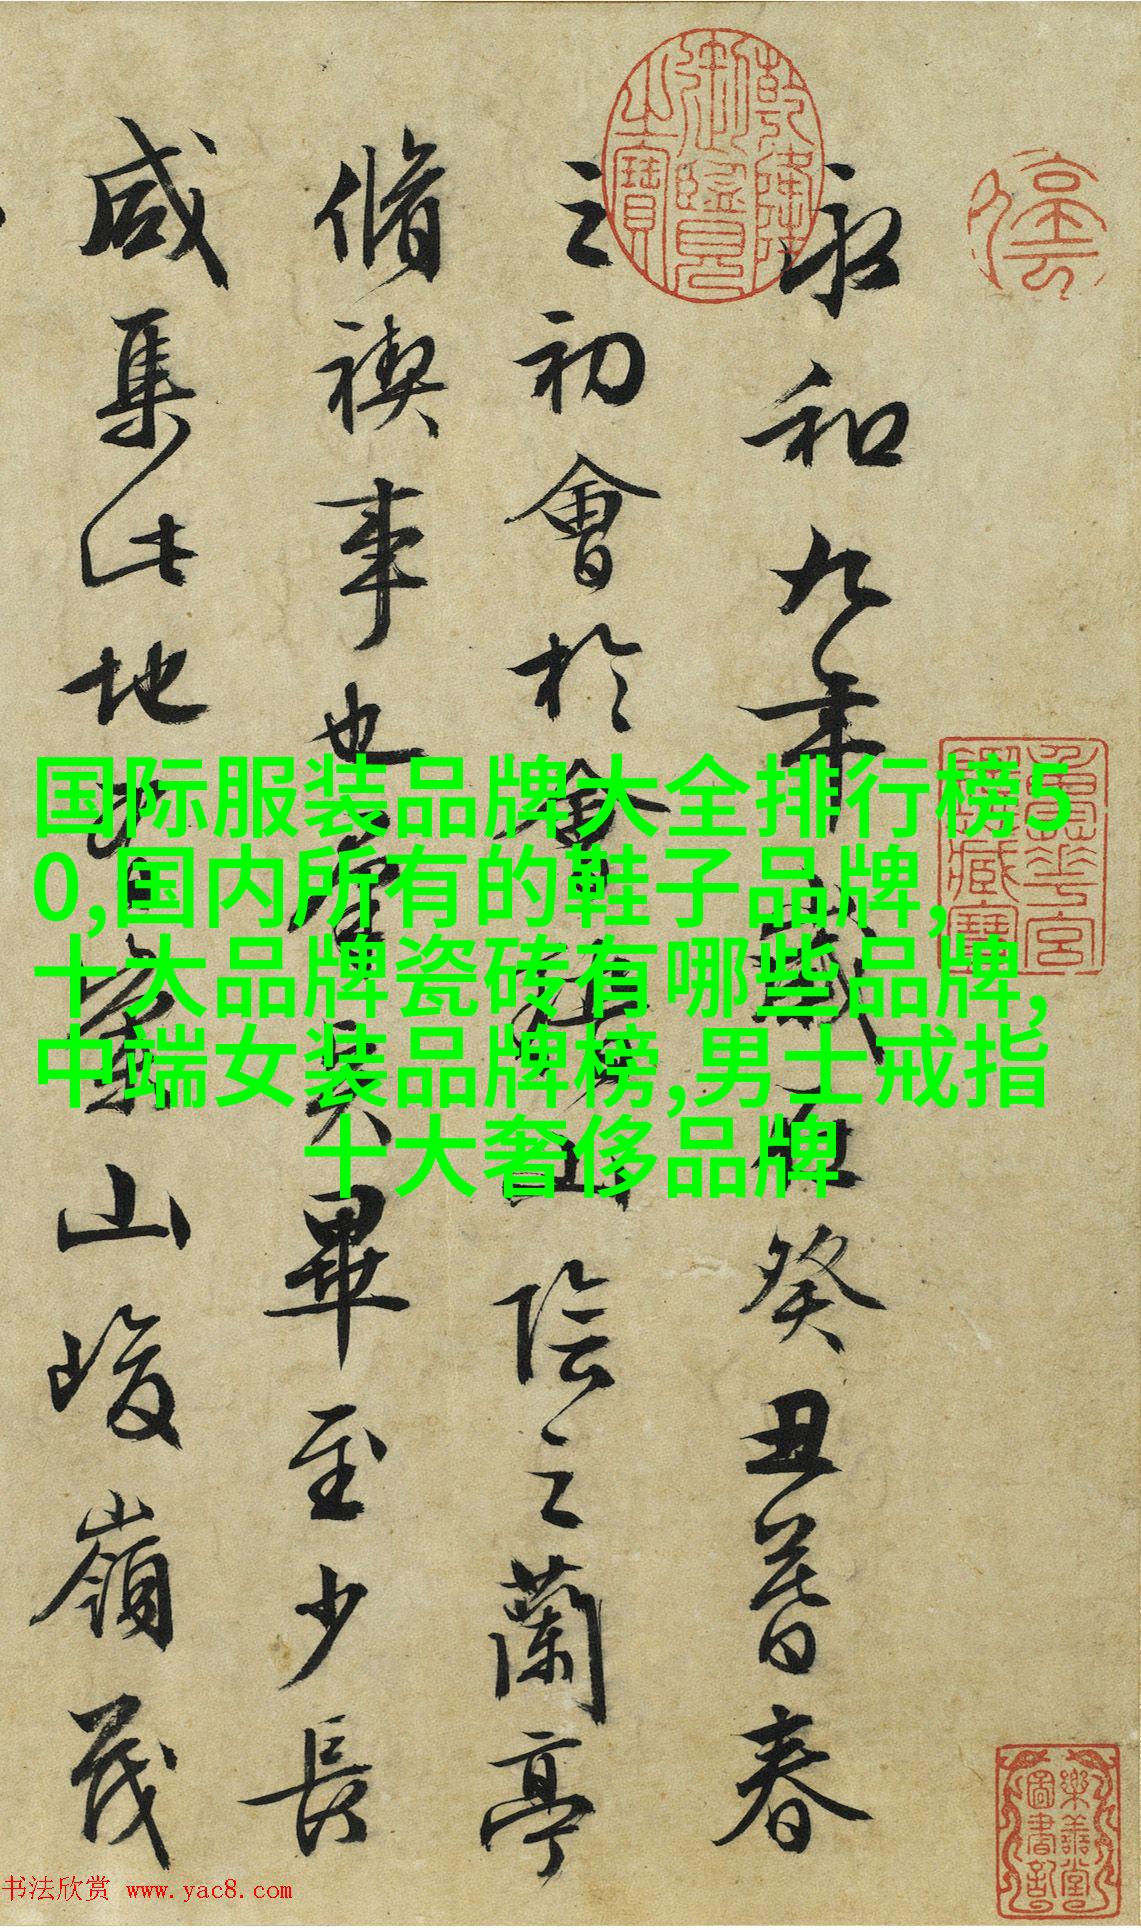 永和九年歲在癸丑暮春
之初會於會稽山陰之蘭亭
脩禊事也羣賢畢至少長
咸集此地有崇山峻嶺茂
乾隆御鑑之寶
樂善堂圖書記
国际服装品牌大全排行榜5
0,国内所有的鞋子品牌,
十大品牌瓷砖有哪些品牌,
中端女装品牌榜,男士戒指
十大奢侈品牌
书法欣赏 www.yac8.com